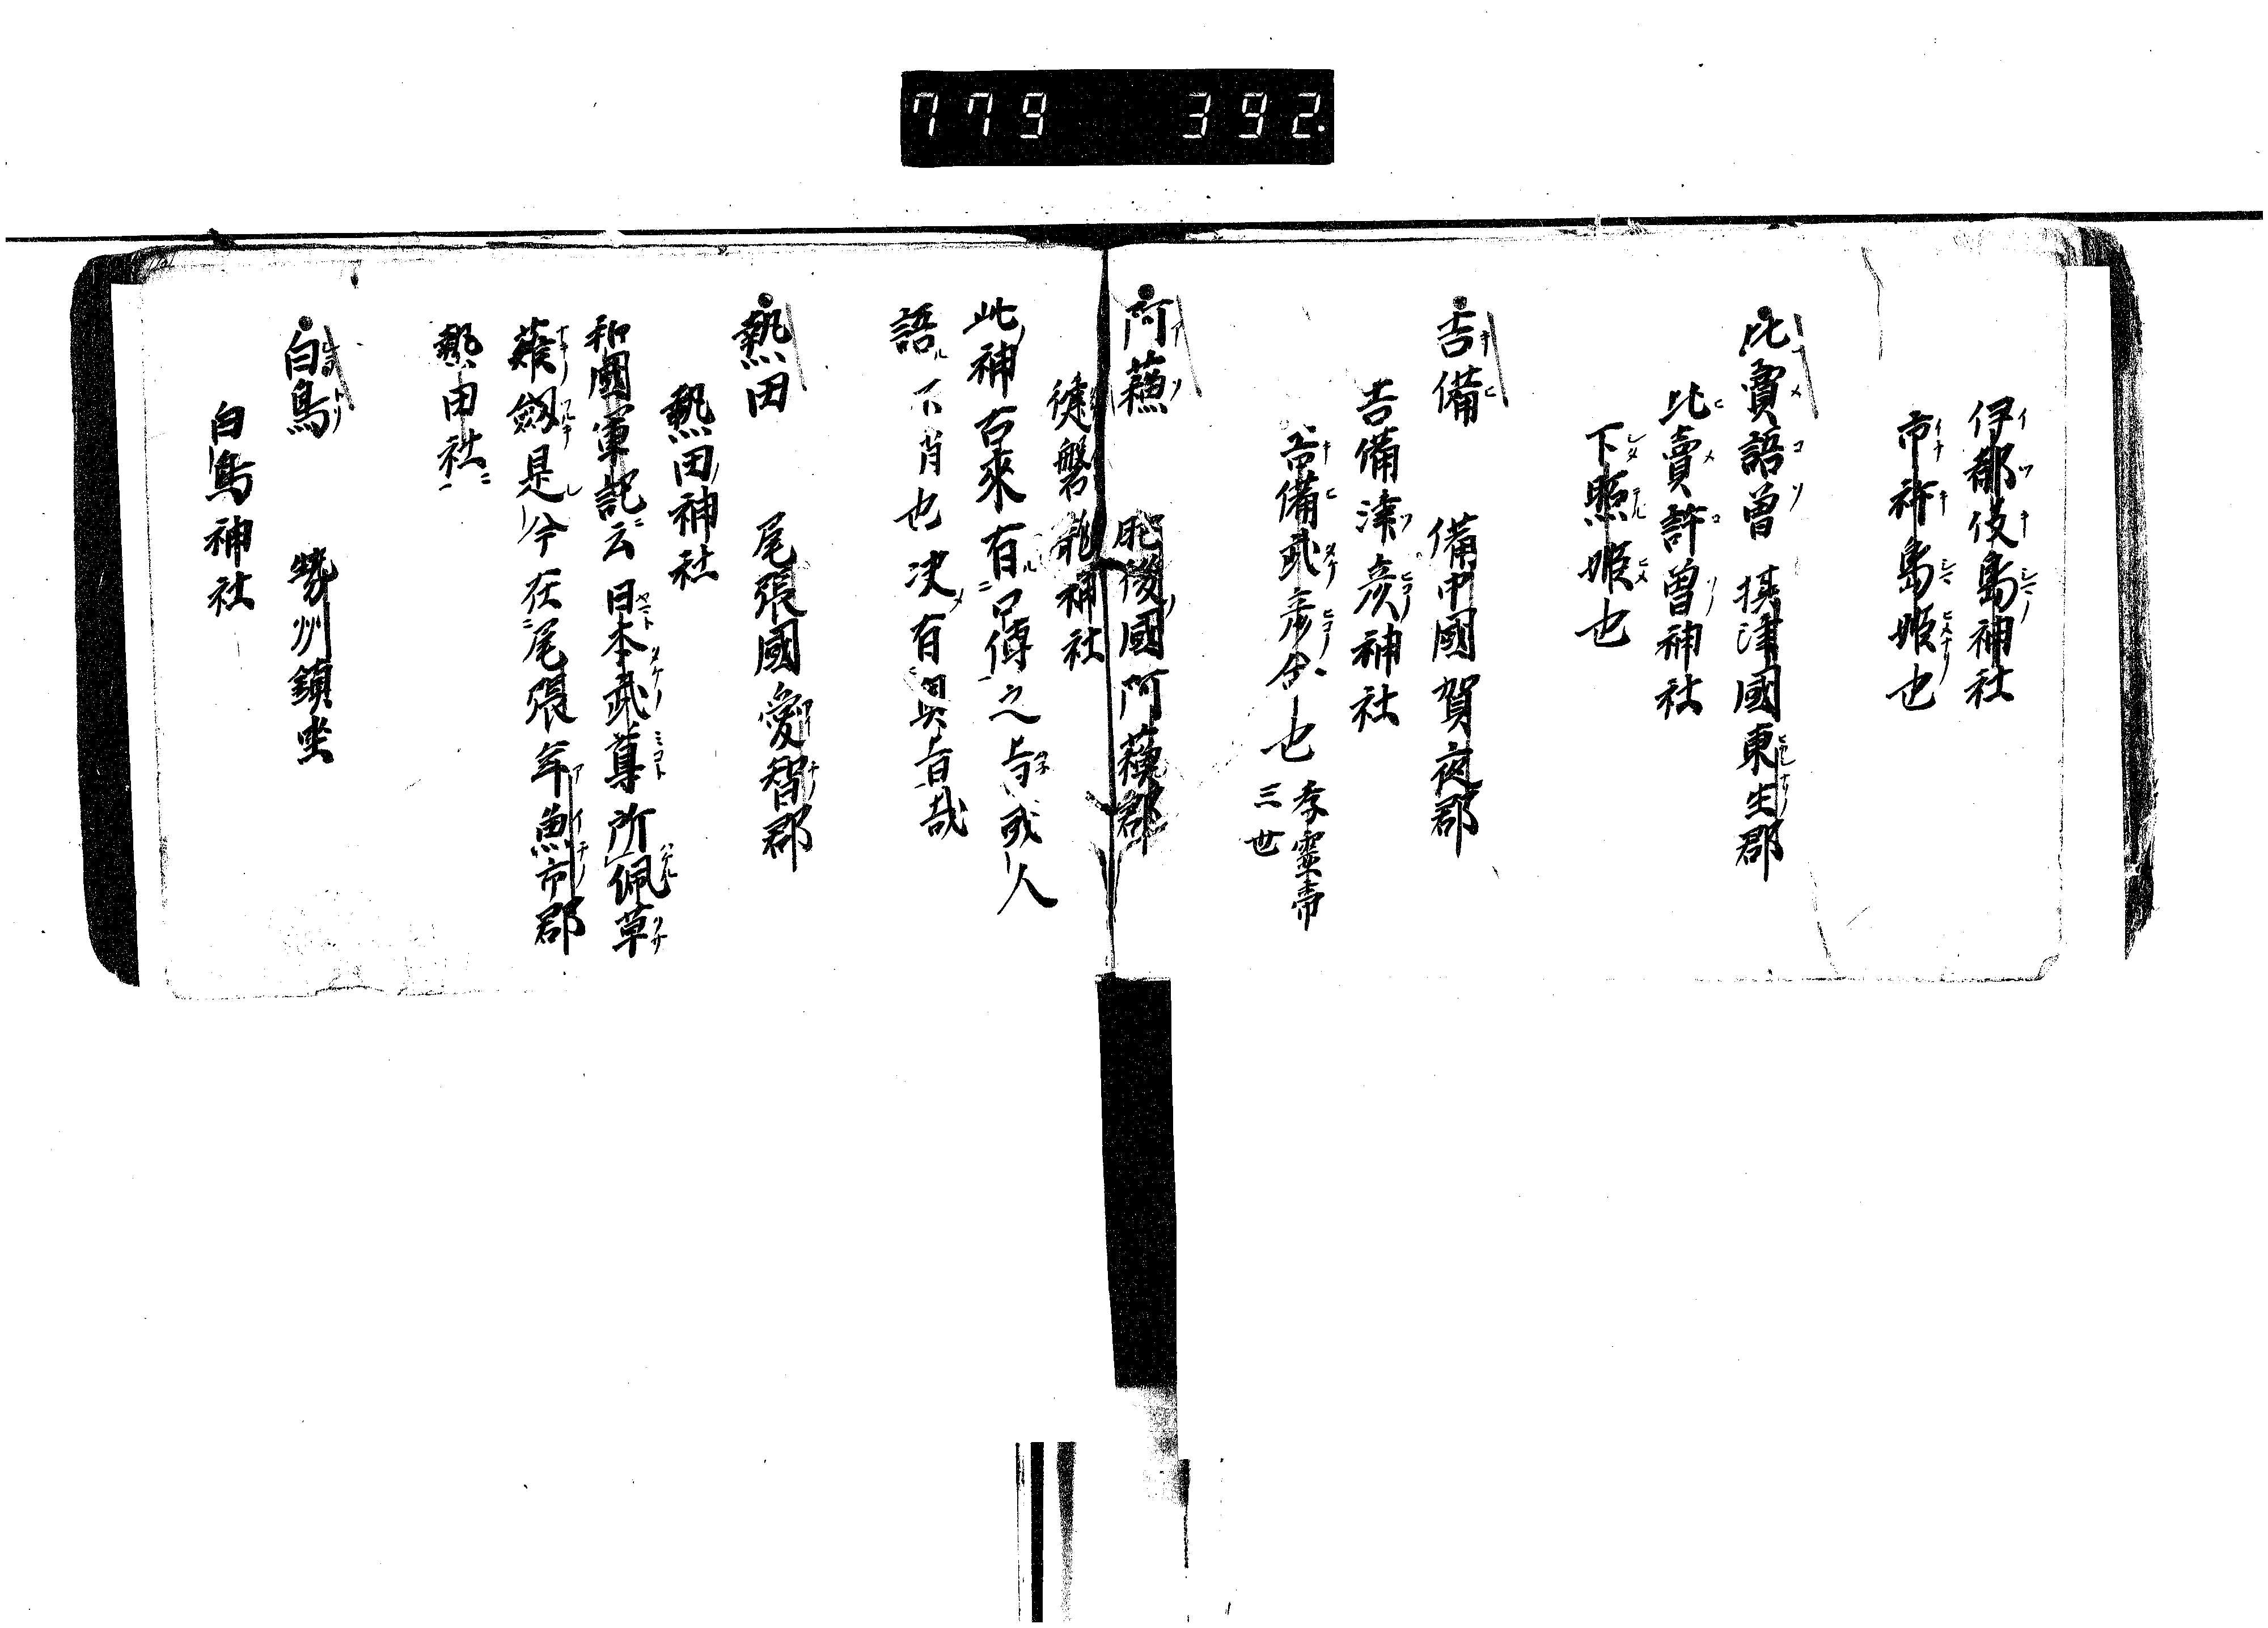 779 392
伊都伎島神社
市杵島姫也
比賣語曽 摂津國東生郡
比賣許曽神社
下照姫也
吉備 備中國賀夜郡
吉備津彦神社
吉備武彦命也 孝霊帝
三世
阿蘓 肥後國阿蘓郡
健磐龍神社
此神古來有口傳之与或人
語不肖也決有異旨哉
熱田 尾張國愛智郡
熱田神社
和國軍記云日本武尊所佩草
薙劔是今在尾張年魚市郡
熱田社
白鳥 勢州鎮坐
白鳥神社